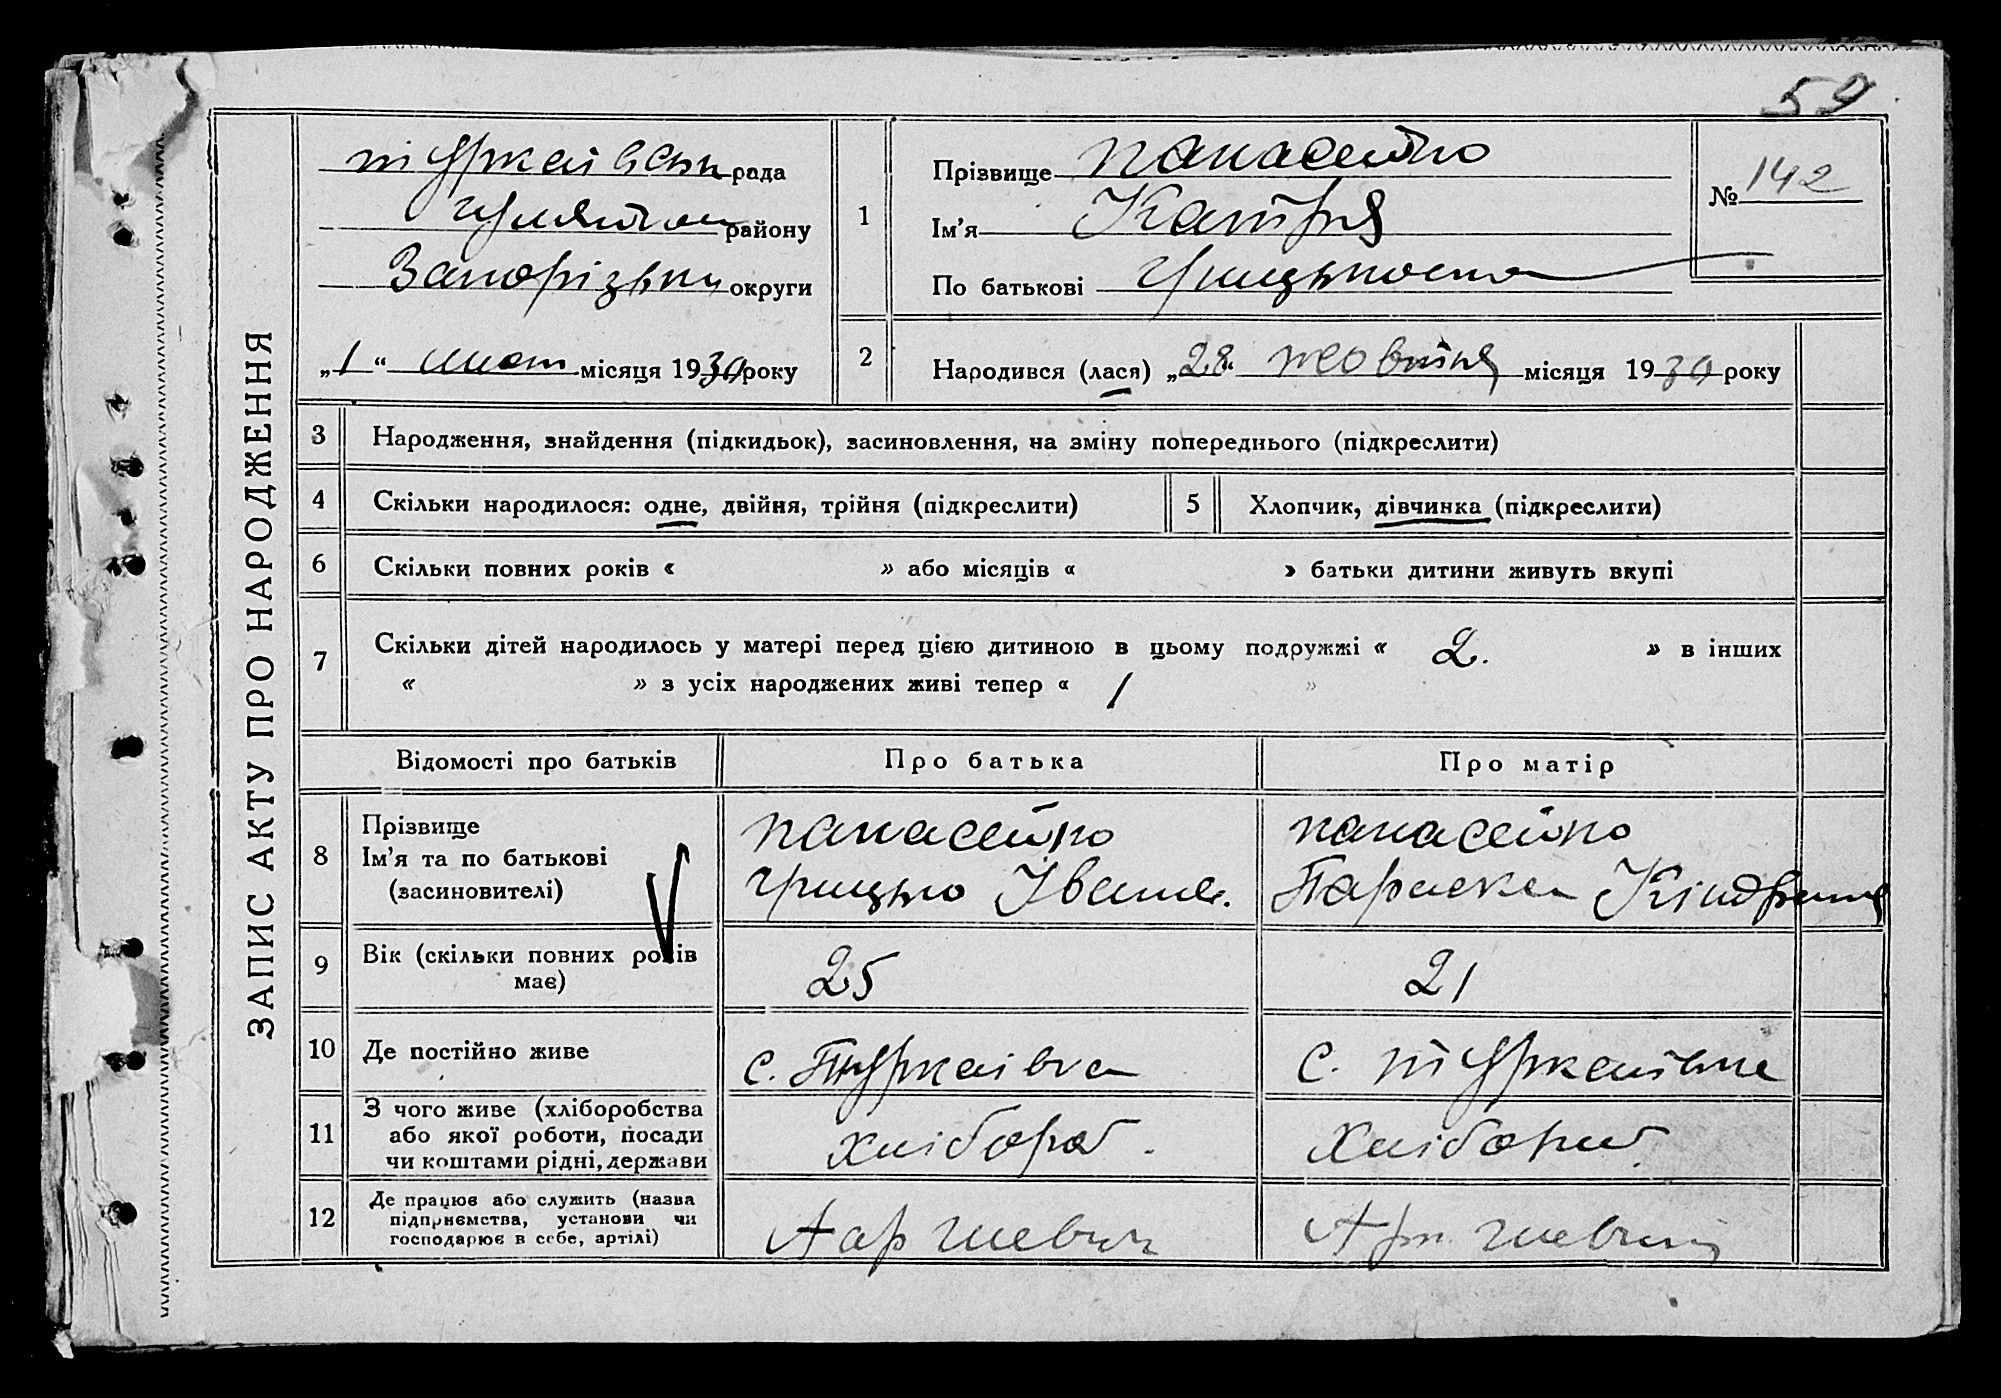 59
ЗАПИС АКТУ ПРО НАРОДЖЕННЯ
рада
району
Запорізьки округи
„1“ місяця 1930 року
1
Прізвище Панасенко
Ім'я Катря
По батькові Грицьковна
№ 142
2
Народився (лася) „28“ жовтня місяця 1930 року
3 Народження, знайдення (підкидьок), засиновлення, на зміну попереднього (підкреслити)
4 Скільки народилося: одне, двійня, трійня (підкреслити) 5 Хлопчик, дівчинка (підкреслити)
6 Скільки повних років « » або місяців « » батьки дитини живуть вкупі
7 Скільки дітей народилось у матері перед цією дитиною в цьому подружжі « 2. » в інших
« » з усіх народжених живі тепер « 1 »
Відомості про батьків Про батька Про матір
8 Прізвище
Ім'я та по батькові
(засиновителі)
Панасенко
Грицько Іванов.
Панасенко
Параска
9 Вік (скільки повних років
має)
25 21
10 Де постійно живе с. Туркенівка с. Туркенівка
11 З чого живе (хліборобства
або якої роботи, посади
чи коштами рідні, держави
хлібороб. хлібороб.
12 Де працює або служить (назва
підприємства, установи чи
господарює в себе, артілі)